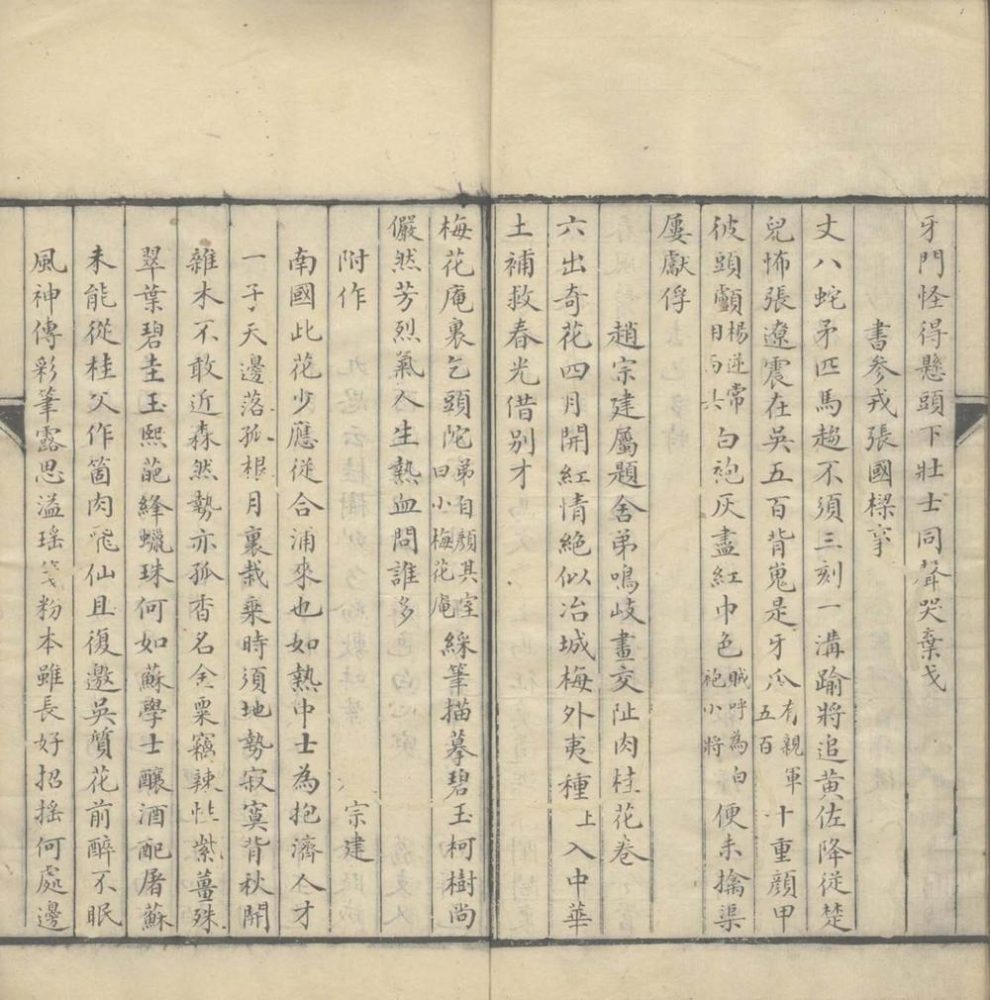 牙門怪得懸頭下壯士同聲哭棄戈
書參戎張國樑事
丈八蛇矛匹馬趨不須三刻一溝踰將追黃佐降從楚
兒怖張遼震在吳五百背嵬是牙爪有親軍五百十重顏甲
彼頭顱楊逆常目馬共白袍灰盡紅巾色賊呼為白袍小將便未擒渠
屢獻俘
趙宗建屬題舍弟鳴岐畫交阯肉桂花卷
六出奇花四月開紅情絶似冶城梅外夷種上入中華
土補救春光借別才
梅花庵裏乞頭陀弟自顏其室曰小梅花庵綵筆描摹碧玉柯樹尚
儼然芳烈氣人生熱血問誰多
附作 宗建
南國此花少應從合浦來也如熱中士為抱濟人才
一子天邊落孤根月裏栽乗時須地勢寂寞背秋開
雜木不敢近森然勢亦孤香名金粟竊辣性紫薑殊
翠葉碧圭玉熙葩絳蠟珠何如蘇學士釀酒配屠蘇
未能從桂父作箇肉飛仙且復邀吳質花前醉不眠
風神傳彩筆露思溢瑶箋粉本雖長好招摇何處邊